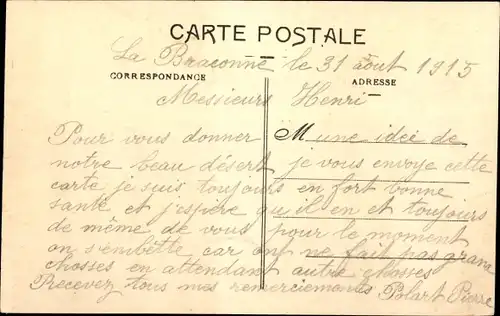 CARTE POSTALE
La Braconne le 31 aout 1915
CORRESPONDANCE ADRESSE
Messieurs Henri
Pour vous donner une idée de
notre beau désert je vous envoye cette
carte je suis toujours en fort bonne
santé et j'espère qu'il en et toujours
de même de vous pour le moment
on s'embette car on ne fait pas grand
chosses en attendant autre chosses
Recevez tous mes remerciements Polart Pierre